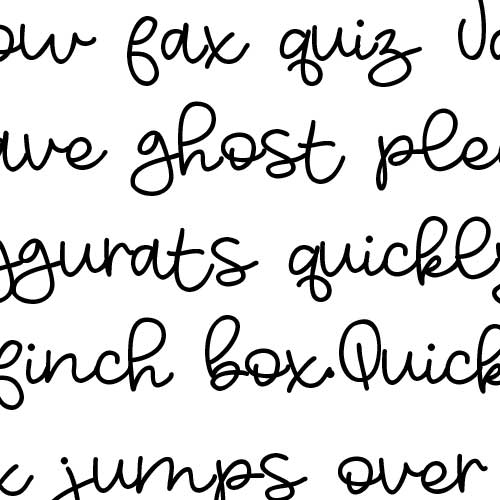 ow fax quiz
ave ghost ple
ggurats quickly
finch box.Quick
x jumps over